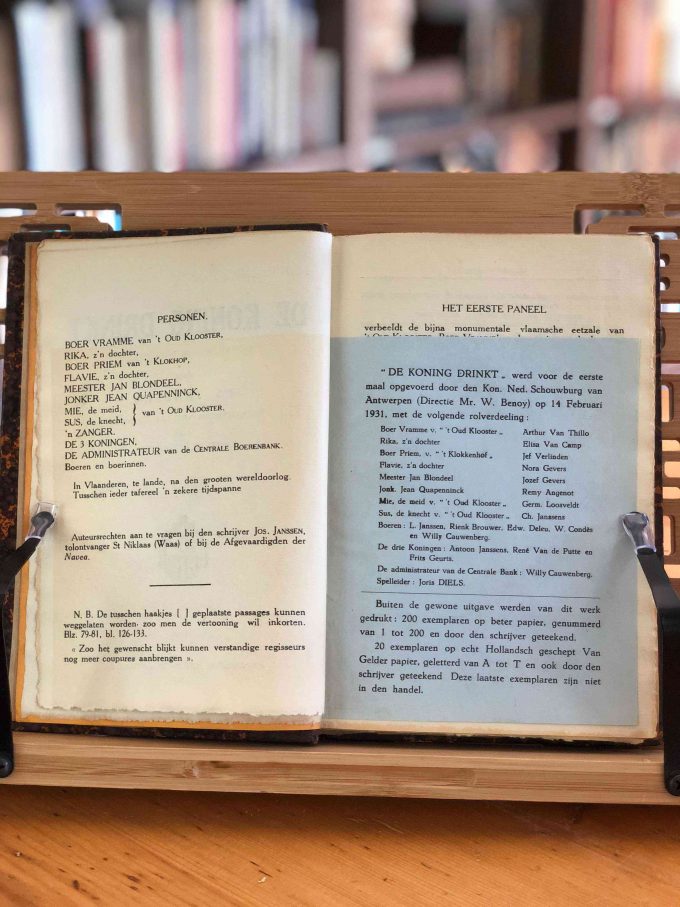 PERSONEN.
BOER VRAMME van 't OUD KLOOSTER,
RIKA, z'n dochter,
BOER PRIEM van 't KLOKHOF,
FLAVIE, z'n dochter,
MEESTER JAN BLONDEEL,
JONKER JEAN QUAPENNINCK,
MIE, de meid, } van 't OUD KLOOSTER.
SUS, de knecht,
'n ZANGER.
DE 3 KONINGEN,
DE ADMINISTRATEUR van de CENTRALE BOERENBANK.
Boeren en boerinnen.
In Vlaanderen, te lande, na den grooten wereldoorlog.
Tusschen ieder tafereel 'n zekere tijdspanne
Auteursrechten aan te vragen bij den schrijver JOS. JANSSEN,
tolontvanger St Niklaas (Waas) of bij de Afgevaardigden der
Navea.
N. B. De tusschen haakjes [ ] geplaatste passages kunnen
weggelaten worden. zoo men de vertooning wil inkorten.
Blz. 79-81, bl. 126-133.
« Zoo het gewenscht blijkt kunnen verstandige regisseurs
nog meer coupures aanbrengen ».
HET EERSTE PANEEL
verbeeldt de bijna monumentale vlaamsche eetzale van
“ DE KONING DRINKT „ werd voor de eerste
maal opgevoerd door den Kon. Ned. Schouwburg van
Antwerpen (Directie Mr. W. Benoy) op 14 Februari
1931, met de volgende rolverdeeling :
Boer Vramme v. “ 't Oud Klooster „ Arthur Van Thillo
Rika, z'n dochter Elisa Van Camp
Boer Priem, v. “ 't Klokkenhof „ Jef Verlinden
Flavie, z'n dochter Nora Gevers
Meester Jan Blondeel Jozef Gevers
Jonk. Jean Quapenninck Remy Angenot
Mie, de meid v. “ 't Oud Klooster „ Germ. Loosveldt
Sus, de knecht v. “ 't Oud Klooster „ Ch. Janssens
Boeren : L. Janssen, Rienk Brouwer, Edw. Deleu, W. Condès
en Willy Cauwenberg.
De drie Koningen : Antoon Janssens, René Van de Putte en
Frits Geurts.
De administrateur van de Centrale Bank : Willy Cauwenberg.
Spelleider : Joris DIELS.
Buiten de gewone uitgave werden van dit werk
gedrukt : 200 exemplaren op beter papier, genummerd
van 1 tot 200 en door den schrijver geteekend.
20 exemplaren op echt Hollandsch geschept Van
Gelder papier, geletterd van A tot T en ook door den
schrijver geteekend Deze laatste exemplaren zijn niet
in den handel.